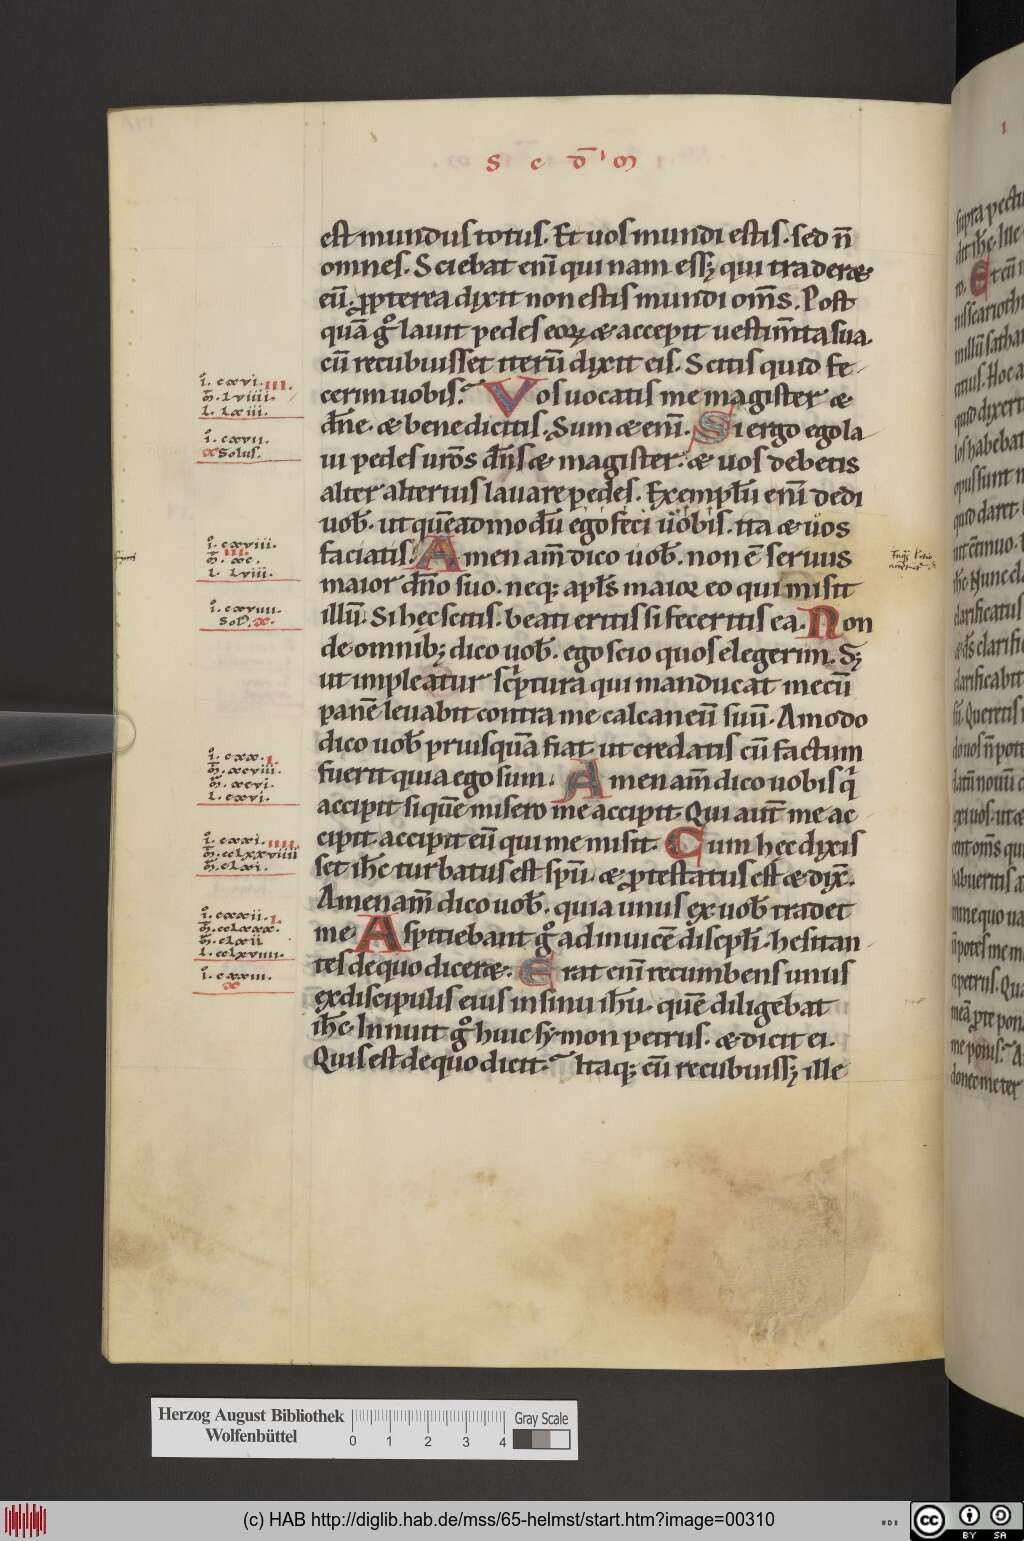 S c d̅ m
est mundus totus. Et uos mundi estis. sed n̅
omnes. Sciebat eni̅ qui nam ess& qui traderet
eu̅. ꝓpterea dixit non estis mundi om̅s. Post
qua̅ gͦ lauit pedes eoꝝ & accepit uestim̅ta sua.
cu̅ recubuisset iteru̅ dixit eis. Scitis quid fe
cerim uobis. Vos uocatis me magister &
dn̅e. & bene dicitis. Sum & eni̅. Si ergo ego la
ui pedes uros dn̅s & magister. & uos debetis
alter alterius lauare pedes. Exemplu̅ eni̅ dedi
uob̅. ut que̅admodu̅ ego feci uobis. ita & uos
faciatis. Amen am̅ dico uob̅. non e̅ seruus
maior dn̅o suo. neq; apls̅ maior eo qui misit
illu̅. Si hęc scitis. beati eritis si feceritis ea. Non
de omnib; dico uob̅. ego scio quos elegerim. S;
ut impleatur sc̅ptura qui manducat mecu̅
pane̅ leuabit contra me calcaneu̅ suu̅. Amodo
dico uob̅ priusqua̅ fiat. ut credatis cu̅ factum
fuerit quia ego sum. Amen am̅ dico uobis qi
accipit si que̅ misero me accipit. Qui aut̅ me ac
cipit. accipit eu̅ qui me misit. Cum hęc dixis
set ih̅c turbatus est spu̅. & ꝓtestatus est & dix̅.
Amen am̅ dico uob̅. quia unus ex uob̅ tradet
me. Aspitiebant gͦ ad inuice̅ discipli̅. hesitan
tes de quo diceret. Erat eni̅ recumbens unus
ex discipulis eius in sinu ih̅u. que̅ diligebat
ih̅c. Innuit gͦ huic symon petrus. & dicit ei.
Quis est de quo dicit. Itaq; cu̅ recubuiss& ille
i. cxvi. III.
m̅. lviiii.
l. lxiii.
i. cxvii.
x Solus.
i. cxviii.
III.
m̅. xc.
l. lviii.
i. cxviiii.
Sol'. x.
i. cxx. I.
m̅. xcviii.
m̅. xcvi.
l. cxvi.
i. cxxi. IIII.
m̅. cclxxviiii
m̅. clxi.
i. cxxii. I.
m̅. cclxxx.
m̅. clxii
l. cclxviiii.
i. cxxiii.
x
Herzog August Bibliothek
Wolfenbüttel
0 1 2 3 4
Gray Scale
(c) HAB http://diglib.hab.de/mss/65-helmst/start.htm?image=00310
cc
BY SA